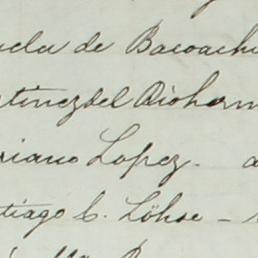 uela de Bacoachi
rtinez del Rio herm
riano Lopez. a
ntiago C. Löhse -